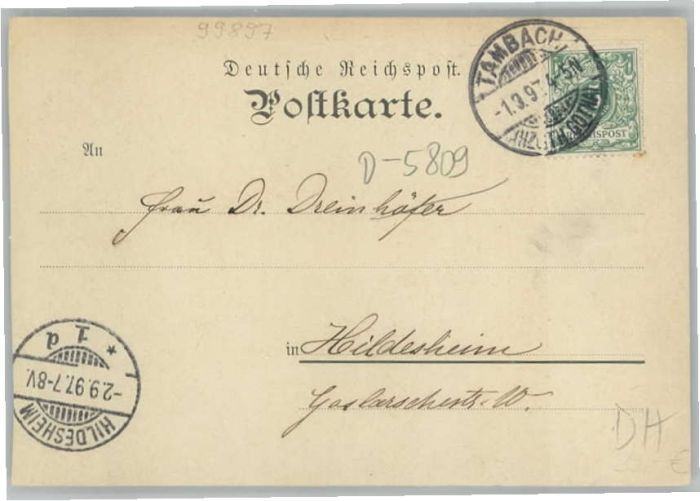 99897
Deutsche Reichspost.
Postkarte.
TAMBACH
-1.3.97. 4-5N
REICHSPOST
An
D-5809
Frau Dr. Dreinhöfer
in Hildesheim
Goslarschestr. W.
HILDESHEIM
-2.9.97. 7-8V.
* 1 d
DH
€